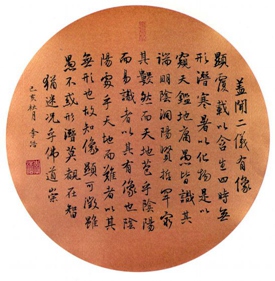 蓋聞二儀有像
顯覆載以含生四時無
形潛寒暑以化物是以
窺天鑑地庸愚皆識其
端明陰洞陽賢哲罕窮
其數然而天地苞乎陰陽
而易識者以其有像也陰
陽處乎天地而難者以其
無形也故知像顯可徵雖
愚不惑形潛莫覩在智
猶迷況乎佛道崇
己亥桂月 李浩